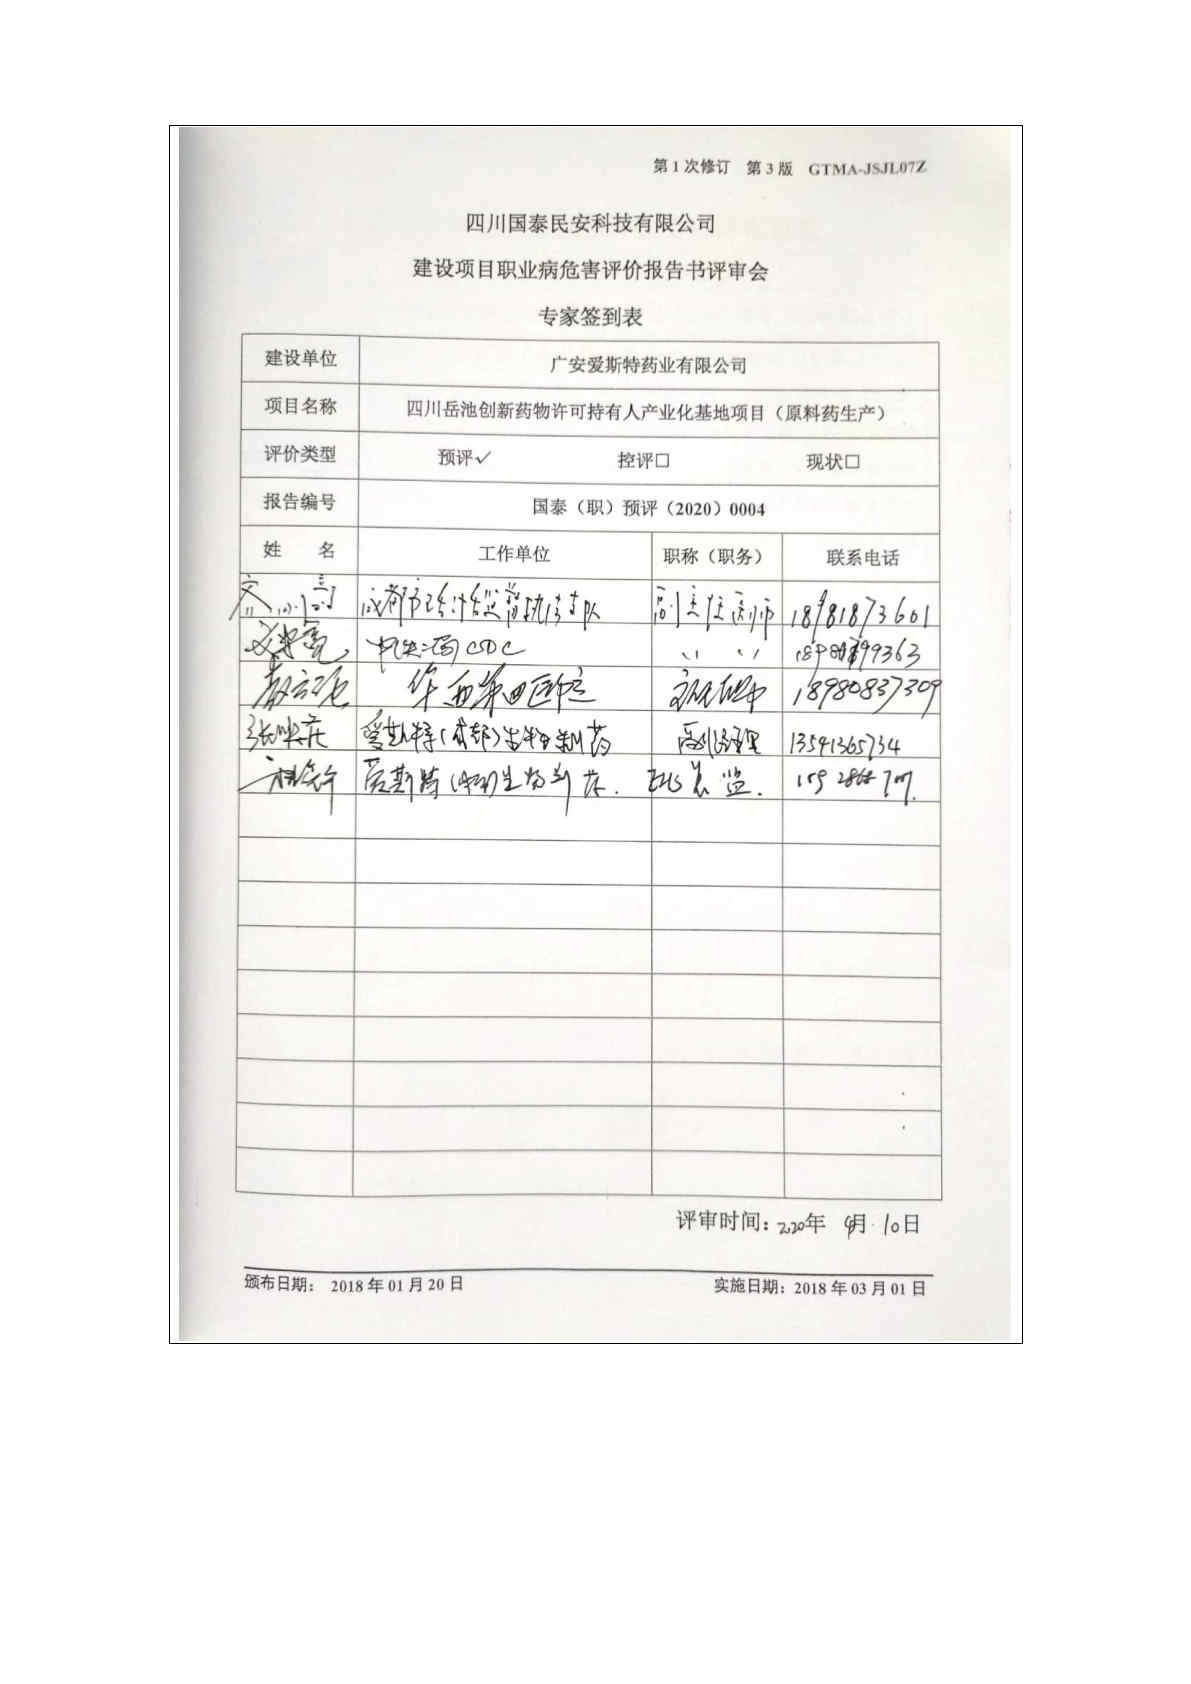 第1次修订 第3版 GTMA-JSJL07Z
四川国泰民安科技有限公司
建设项目职业病危害评价报告书评审会
专家签到表
建设单位 广安爱斯特药业有限公司
项目名称 四川岳池创新药物许可持有人产业化基地项目（原料药生产）
评价类型 预评✓ 控评□ 现状□
报告编号 国泰（职）预评（2020）0004
姓 名 工作单位 职称（职务） 联系电话
成都市卫生计生监督执法支队 副主任医师 18981873601
CDC
华西第四医院 18980837309
爱斯特（成都）生物制药 副总经理 13541365734
爱斯特（成都）生物制药 总监
评审时间：2020年 4月 10日
颁布日期： 2018年01月20日 实施日期：2018年03月01日